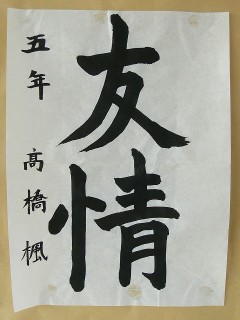 友情
五年 髙橋楓